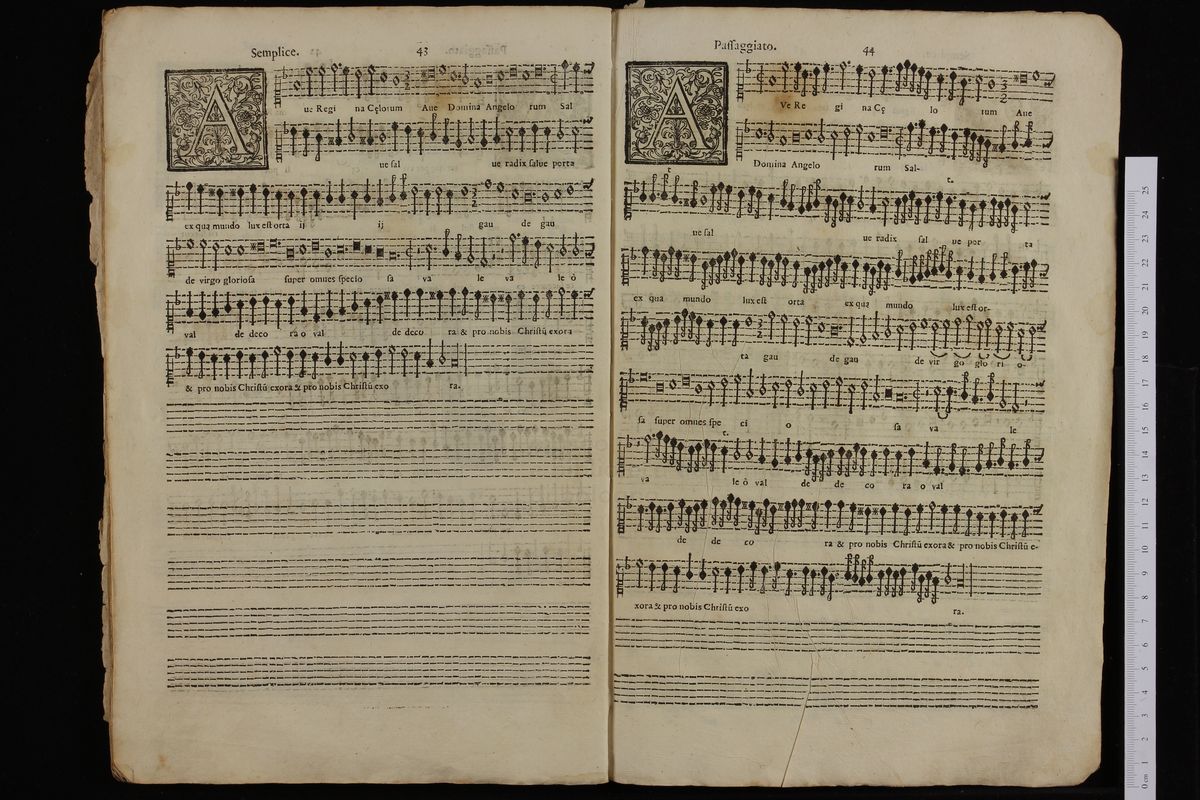 Semplice. 43
A
ue Regi na Cęlorum Aue Domina Angelo rum Sal
ue sal ue radix salue porta
ex qua mundo lux est orta ij ij gau de gau
de virgo gloriosa super omnes specio sa va le va le ô
val de deco ra o val de deco ra & pro nobis Christū exora
& pro nobis Christū exora & pro nobis Christū exo ra.
Passaggiato. 44
A
Ve Re gi na Cę lo rum Aue
Domina Angelo rum Sal-
ue sal ue radix sal ue por ta
ex qua mundo lux est orta ex qua mundo lux est or-
ta gau de gau de vir go glo ri o-
sa super omnes spe ci o sa va le
va le ô val de de co ra o val
de de co ra & pro nobis Christū exora & pro nobis Christū e-
xora & pro nobis Christū exo ra.
0 cm 1 2 3 4 5 6 7 8 9 10 11 12 13 14 15 16 17 18 19 20 21 22 23 24 25